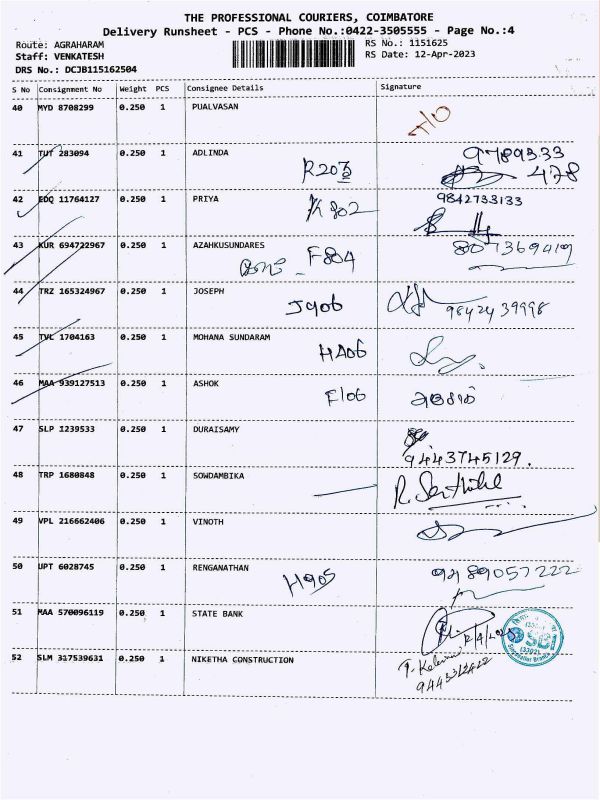 THE PROFESSIONAL COURIERS, COIMBATORE
Delivery Runsheet - PCS - Phone No.:0422-3505555 - Page No.:4
Route: AGRAHARAM
RS No.: 1151625
Staff: VENKATESH
RS Date: 12-Apr-2023
DRS No.: DCJB115162504
S No Consignment No Weight PCS Consignee Details Signature
40 MYD 8708299 0.250 1 PUALVASAN
41 TUT 283094 0.250 1 ADLINDA
R203
478
42 EDQ 11764127 0.250 1 PRIYA 9842733133
K802
43 KUR 694722967 0.250 1 AZAHKUSUNDARES 8057369419
F804
44 TRZ 165324967 0.250 1 JOSEPH
J906 9842439998
45 TVL 1704163 0.250 1 MOHANA SUNDARAM
H406
46 MAA 939127513 0.250 1 ASHOK
F106
47 SLP 1239533 0.250 1 DURAISAMY
9443745129.
48 TRP 1680848 0.250 1 SOWDAMBIKA
49 VPL 216662406 0.250 1 VINOTH
50 UPT 6028745 0.250 1 RENGANATHAN 9489057222
H905
51 MAA 570096119 0.250 1 STATE BANK
SBI
52 SLM 317539631 0.250 1 NIKETHA CONSTRUCTION